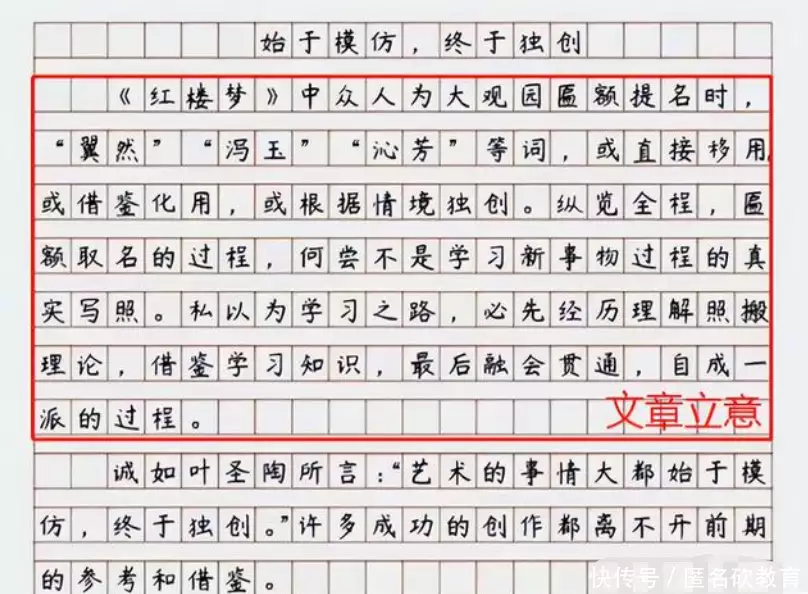 始于模仿，终于独创
《红楼梦》中众人为大观园匾额提名时，
“翼然”“泻玉”“沁芳”等词，或直接移用，
或借鉴化用，或根据情境独创。纵览全程，匾
额取名的过程，何尝不是学习新事物过程的真
实写照。私以为学习之路，必先经历理解照搬
理论，借鉴学习知识，最后融会贯通，自成一
派的过程。
文章立意
诚如叶圣陶所言：“艺术的事情大都始于模
仿，终于独创。”许多成功的创作都离不开前期
的参考和借鉴。
快传号／匿名砍教育